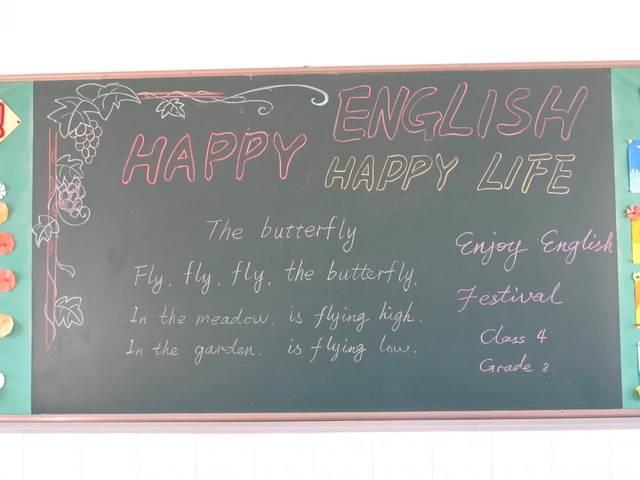 HAPPY ENGLISH
HAPPY LIFE
The butterfly
Fly, fly, fly, the butterfly.
In the meadow, is flying high.
In the garden, is flying low.
Enjoy English
Festival
Class 4
Grade 2